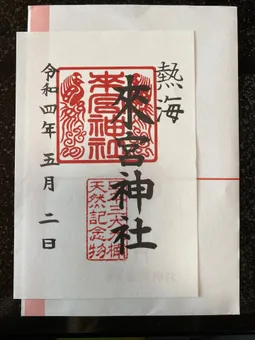 熱海
來宮神社
来宮神社
天然記念物
令和四年 五月 二日